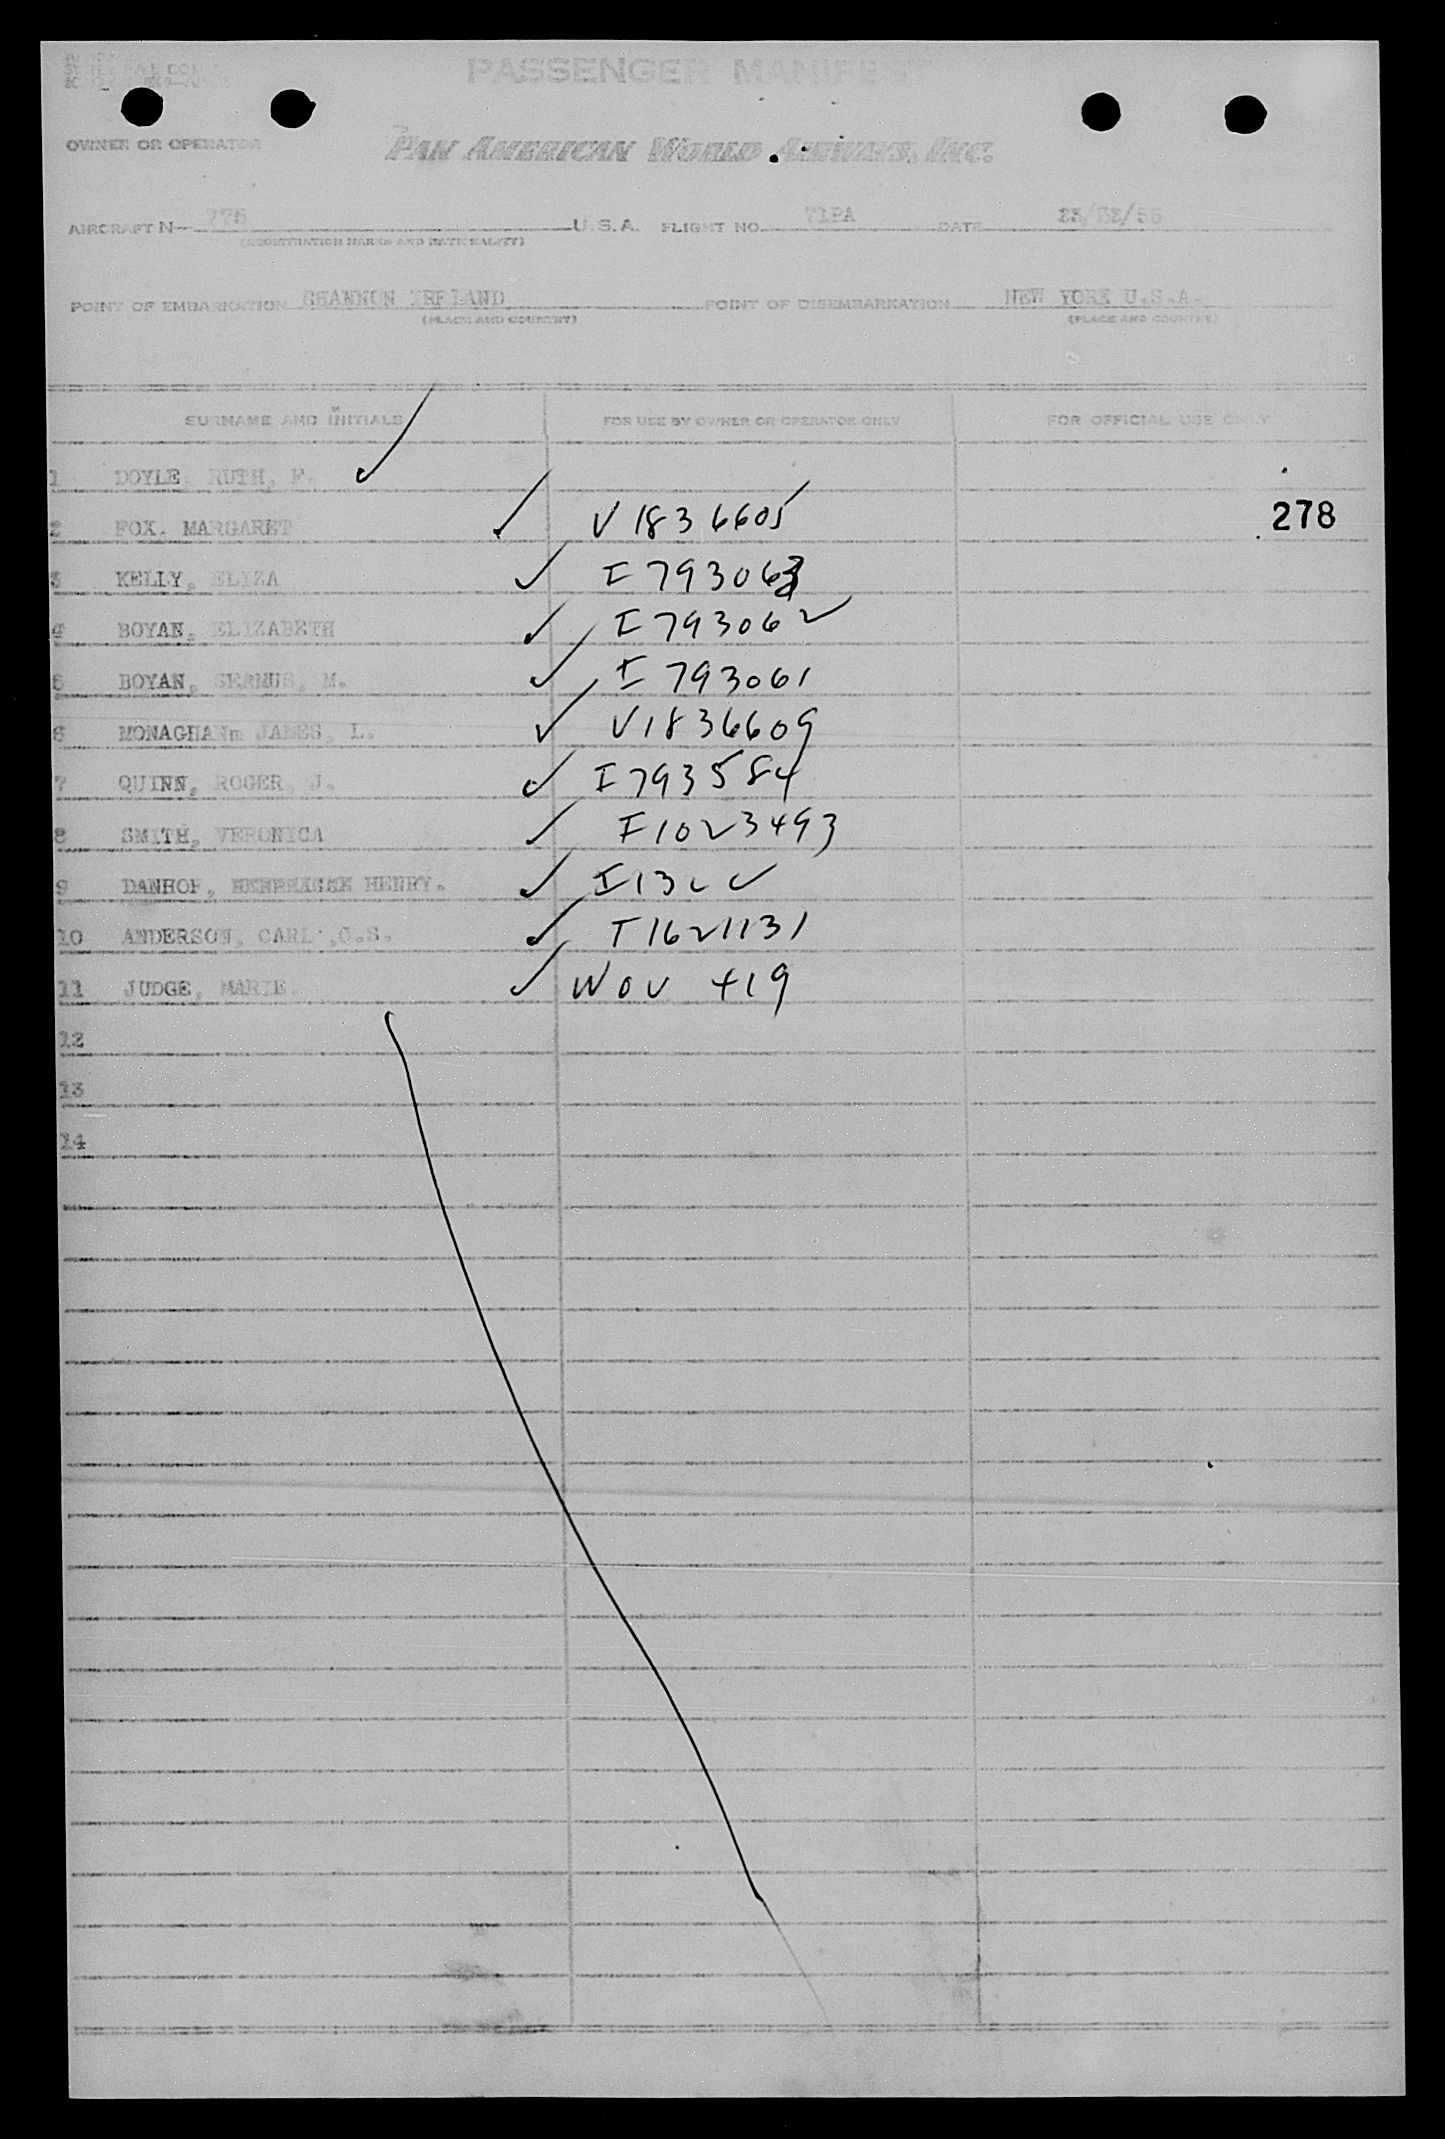 PASSENGER MANIFEST
OWNER OR OPERATOR PAN AMERICAN WORLD AIRWAYS, INC.
AIRCRAFT N- 775 U.S.A. FLIGHT NO. 71PA DATE
(REGISTRATION MARKS AND NATIONALITY)
POINT OF EMBARKATION SHANNON IRELAND POINT OF DISEMBARKATION NEW YORK U.S.A.
(PLACE AND COUNTRY) (PLACE AND COUNTRY)
SURNAME AND INITIALS FOR USE BY OWNER OR OPERATOR ONLY FOR OFFICIAL USE ONLY
1 DOYLE, RUTH, F. ✓
2 FOX, MARGARET ✓ V1836605 278
3 KELLY, ELIZA ✓ I793063
4 BOYAN, ELIZABETH ✓ I793062
5 BOYAN, SEAMUS, M. ✓ I793061
6 MONAGHANm JAMES, L. ✓ V1836609
7 QUINN, ROGER, J. ✓ I793584
8 SMITH, VERONICA ✓ I1023493
9 DANHOF, HENRY. ✓
10 ANDERSON, CARL ,C.S. ✓ I1621131
11 JUDGE, MARIE. ✓ WOV 419
12
13
14